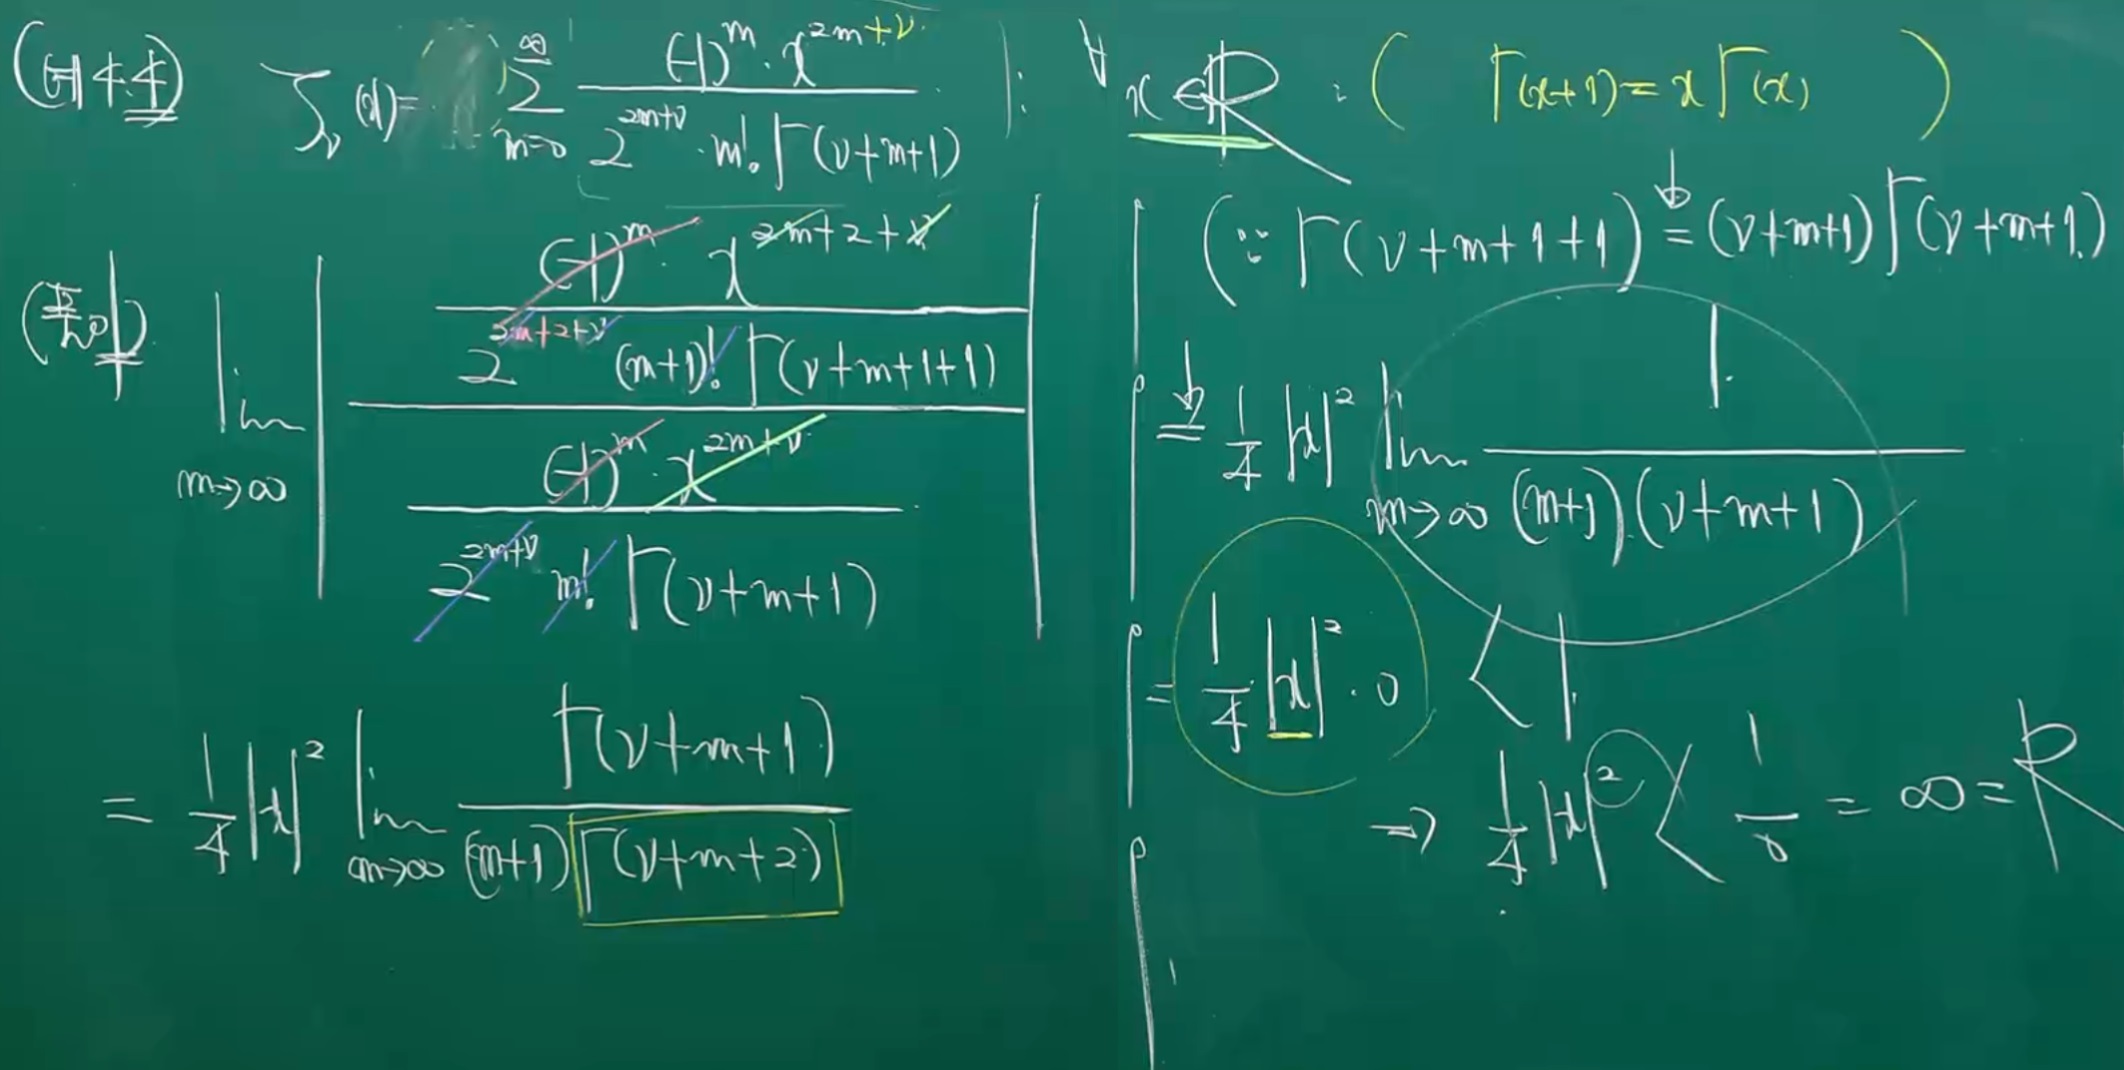 J_ν(x) = \sum_{m=0}^{∞} \frac{(-1)^m · x^{2m+ν}}{2^{2m+ν} · m! Γ(ν+m+1)} : ∀ x ∈ ℝ : ( Γ(x+1) = x Γ(x) )
\lim_{m→∞} | \frac{\frac{(-1)^m · x^{2m+2+ν}}{2^{2m+2+ν} (m+1)! Γ(ν+m+1+1)}}{\frac{(-1)^m · x^{2m+ν}}{2^{2m+ν} m! Γ(ν+m+1)}} |
= \frac{1}{4} |x|^2 \lim_{m→∞} \frac{Γ(ν+m+1)}{(m+1) Γ(ν+m+2)}
(∵ Γ(ν+m+1+1) = (ν+m+1) Γ(ν+m+1)
= \frac{1}{4} |x|^2 \lim_{m→∞} \frac{1}{(m+1)·(ν+m+1)}
= \frac{1}{4} |x|^2 · 0 < 1.
→ \frac{1}{4} |x|^2 < \frac{1}{0} = ∞ = R